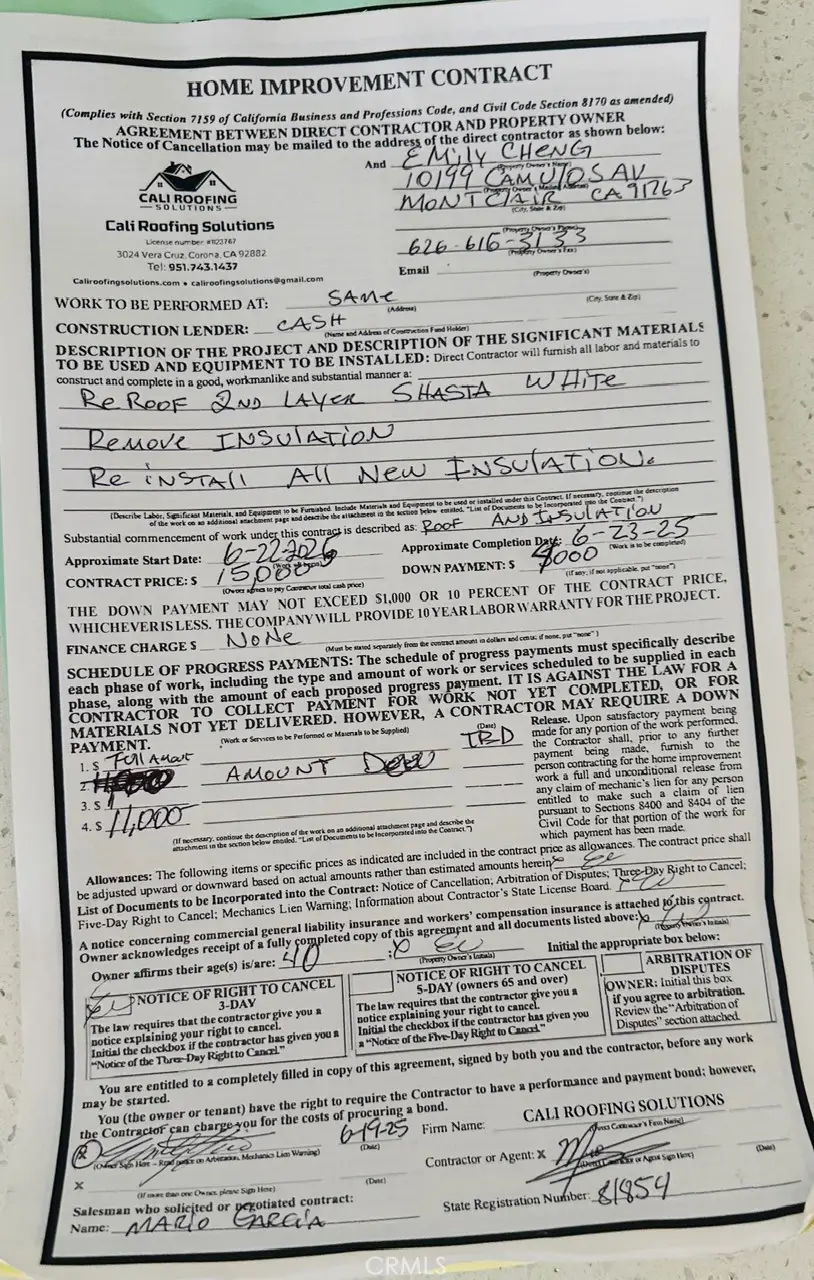 HOME IMPROVEMENT CONTRACT
(Complies with Section 7159 of California Business and Professions Code, and Civil Code Section 8170 as amended)
AGREEMENT BETWEEN DIRECT CONTRACTOR AND PROPERTY OWNER
The Notice of Cancellation may be mailed to the address of the direct contractor as shown below:
CALI ROOFING
SOLUTIONS
Cali Roofing Solutions
License number #1123767
3024 Vera Cruz, Corona, CA 92882
Tel: 951.743.1437
Caliroofingsolutions.com • caliroofingsolutions@gmail.com
And EMily CHENG
(Property Owner's Name)
10199 CAMULOS AV
(Property Owner's Mailing Address)
MONTCLAIR CA 91763
(City, State & Zip)
(Property Owner's Phone)
626-616-3133
(Property Owner's Fax)
Email
(Property Owner's)
WORK TO BE PERFORMED AT: SAMe
(Address) (City, State & Zip)
CONSTRUCTION LENDER: CASH
(Name and Address of Construction Fund Holder)
DESCRIPTION OF THE PROJECT AND DESCRIPTION OF THE SIGNIFICANT MATERIALS
TO BE USED AND EQUIPMENT TO BE INSTALLED: Direct Contractor will furnish all labor and materials to
construct and complete in a good, workmanlike and substantial manner a:
Re ROOF 2ND LAYER SHASTA WHITe
Remove INSULATION
Re install All New INSULATION.
(Describe Labor, Significant Materials, and Equipment to be Furnished. Include Materials and Equipment to be used or installed under this Contract. If necessary, continue the description
of the work on an additional attachment page and describe the attachment in the section below entitled, "List of Documents to be Incorporated into the Contract.")
Substantial commencement of work under this contract is described as: ROOF AND INSULATION
Approximate Start Date: 6-22-2025 Approximate Completion Date: 6-23-25
(Work is to be completed)
CONTRACT PRICE: $ 15,000 DOWN PAYMENT: $ 4000
(Owner agrees to pay Contractor total cash price) (If any; if not applicable, put "none")
THE DOWN PAYMENT MAY NOT EXCEED $1,000 OR 10 PERCENT OF THE CONTRACT PRICE,
WHICHEVER IS LESS. THE COMPANY WILL PROVIDE 10 YEAR LABOR WARRANTY FOR THE PROJECT.
FINANCE CHARGE $ NoNe
(Must be stated separately from the contract amount in dollars and cents; if none, put "none")
SCHEDULE OF PROGRESS PAYMENTS: The schedule of progress payments must specifically describe
each phase of work, including the type and amount of work or services scheduled to be supplied in each
phase, along with the amount of each proposed progress payment. IT IS AGAINST THE LAW FOR A
CONTRACTOR TO COLLECT PAYMENT FOR WORK NOT YET COMPLETED, OR FOR
MATERIALS NOT YET DELIVERED. HOWEVER, A CONTRACTOR MAY REQUIRE A DOWN
PAYMENT.
(Work or Services to be Performed or Materials to be Supplied) (Date)
1. $ Full Amout TBD
2. AMOUNT
3. $
4. $ 11,000
(If necessary, continue the description of the work on an additional attachment page and describe the
attachment in the section below entitled, "List of Documents to be Incorporated into the Contract.")
Release. Upon satisfactory payment being
made for any portion of the work performed,
the Contractor shall, prior to any further
payment being made, furnish to the
person contracting for the home improvement
work a full and unconditional release from
any claim of mechanic's lien for any person
entitled to make such a claim of lien
pursuant to Sections 8400 and 8404 of the
Civil Code for that portion of the work for
which payment has been made.
Allowances: The following items or specific prices as indicated are included in the contract price as allowances. The contract price shall
be adjusted upward or downward based on actual amounts rather than estimated amounts herein
List of Documents to be Incorporated into the Contract: Notice of Cancellation; Arbitration of Disputes; Three-Day Right to Cancel;
Five-Day Right to Cancel; Mechanics Lien Warning; Information about Contractor's State License Board.
A notice concerning commercial general liability insurance and workers' compensation insurance is attached to this contract.
Owner acknowledges receipt of a fully completed copy of this agreement and all documents listed above: x
(Property Owner's Initials)
Owner affirms their age(s) is/are: 40 ; x EC
(Property Owner's Initials)
Initial the appropriate box below:
NOTICE OF RIGHT TO CANCEL
3-DAY
The law requires that the contractor give you a
notice explaining your right to cancel.
Initial the checkbox if the contractor has given you a
"Notice of the Three-Day Right to Cancel."
NOTICE OF RIGHT TO CANCEL
5-DAY (owners 65 and over)
The law requires that the contractor give you a
notice explaining your right to cancel.
Initial the checkbox if the contractor has given you
a "Notice of the Five-Day Right to Cancel."
ARBITRATION OF
DISPUTES
OWNER: Initial this box
if you agree to arbitration.
Review the "Arbitration of
Disputes" section attached.
You are entitled to a completely filled in copy of this agreement, signed by both you and the contractor, before any work
may be started.
You (the owner or tenant) have the right to require the Contractor to have a performance and payment bond; however,
the Contractor can charge you for the costs of procuring a bond.
x 6-19-25
(Owner Sign Here – Read notice on Arbitration, Mechanics Lien Warning) (Date)
x
(If more than one Owner, please Sign Here) (Date)
Firm Name: CALI ROOFING SOLUTIONS
(Direct Contractor's Firm Name)
Contractor or Agent: x
(Direct Contractor or Agent Sign Here) (Date)
Salesman who solicited or negotiated contract:
Name: MARIO GARCIA
State Registration Number: 81854
CRMLS